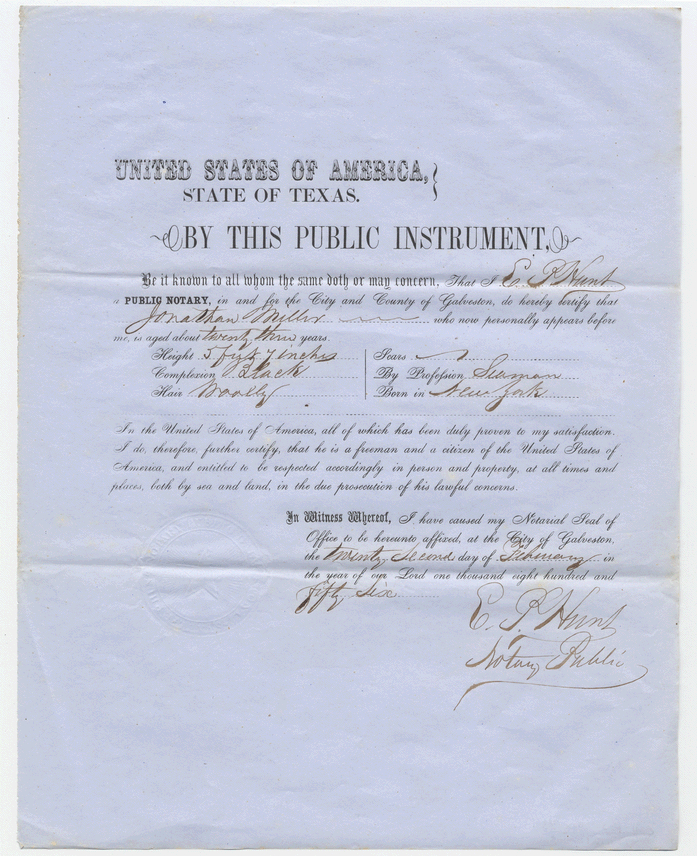 UNITED STATES OF AMERICA,
STATE OF TEXAS.
BY THIS PUBLIC INSTRUMENT,
Be it known to all whom the same doth or may concern, That I E. P. Hunt
a PUBLIC NOTARY, in and for the City and County of Galveston, do hereby certify that
Jonathan Miller who now personally appears before
me, is aged about twenty three years.
Height 5 feet 7 inches Scars
Complexion Black By Profession Seaman
Hair Woolly Born in New York
In the United States of America, all of which has been duly proven to my satisfaction.
I do, therefore, further certify, that he is a freeman and a citizen of the United States of
America, and entitled to be respected accordingly in person and property, at all times and
places, both by sea and land, in the due prosecution of his lawful concerns.
In Witness Whereof, I have caused my Notarial Seal of
Office to be hereunto affixed, at the City of Galveston,
the twenty second day of February in
the year of our Lord one thousand eight hundred and
fifty six
E. P. Hunt
Notary Public